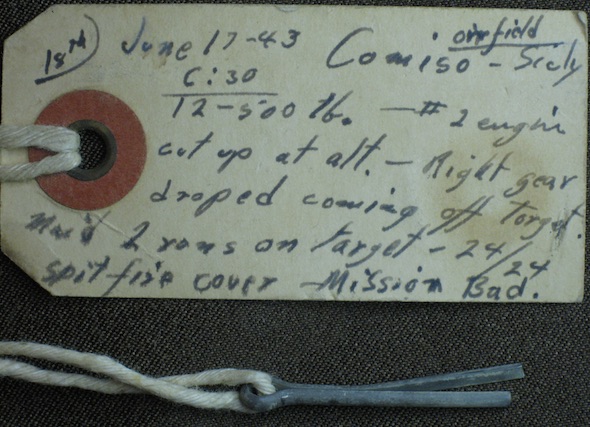 18th June 17-43 Comiso airfield - Sicly
6:30
12-500 lb. - # 2 engin
cut up at alt. - Right gear
droped coming off Target.
Mad 2 runs on target - 24/24
Spitfire cover - Mission Bad.